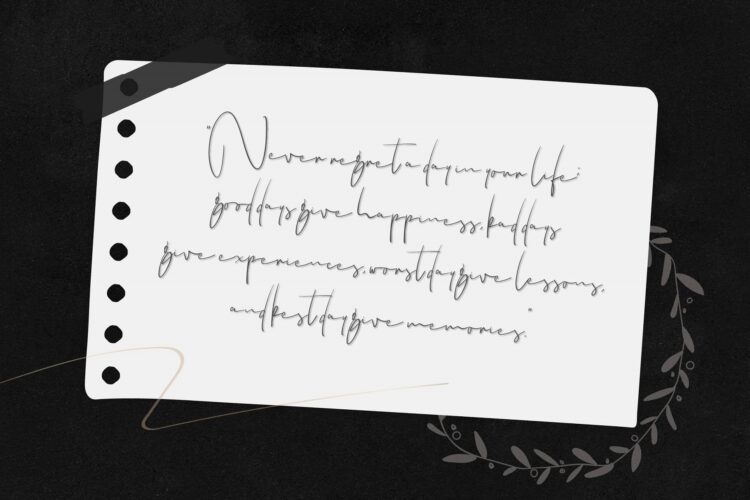 "Never regret a day in your life:
good days give happiness, bad days
give experiences, worst days give lessons,
and best days give memories."